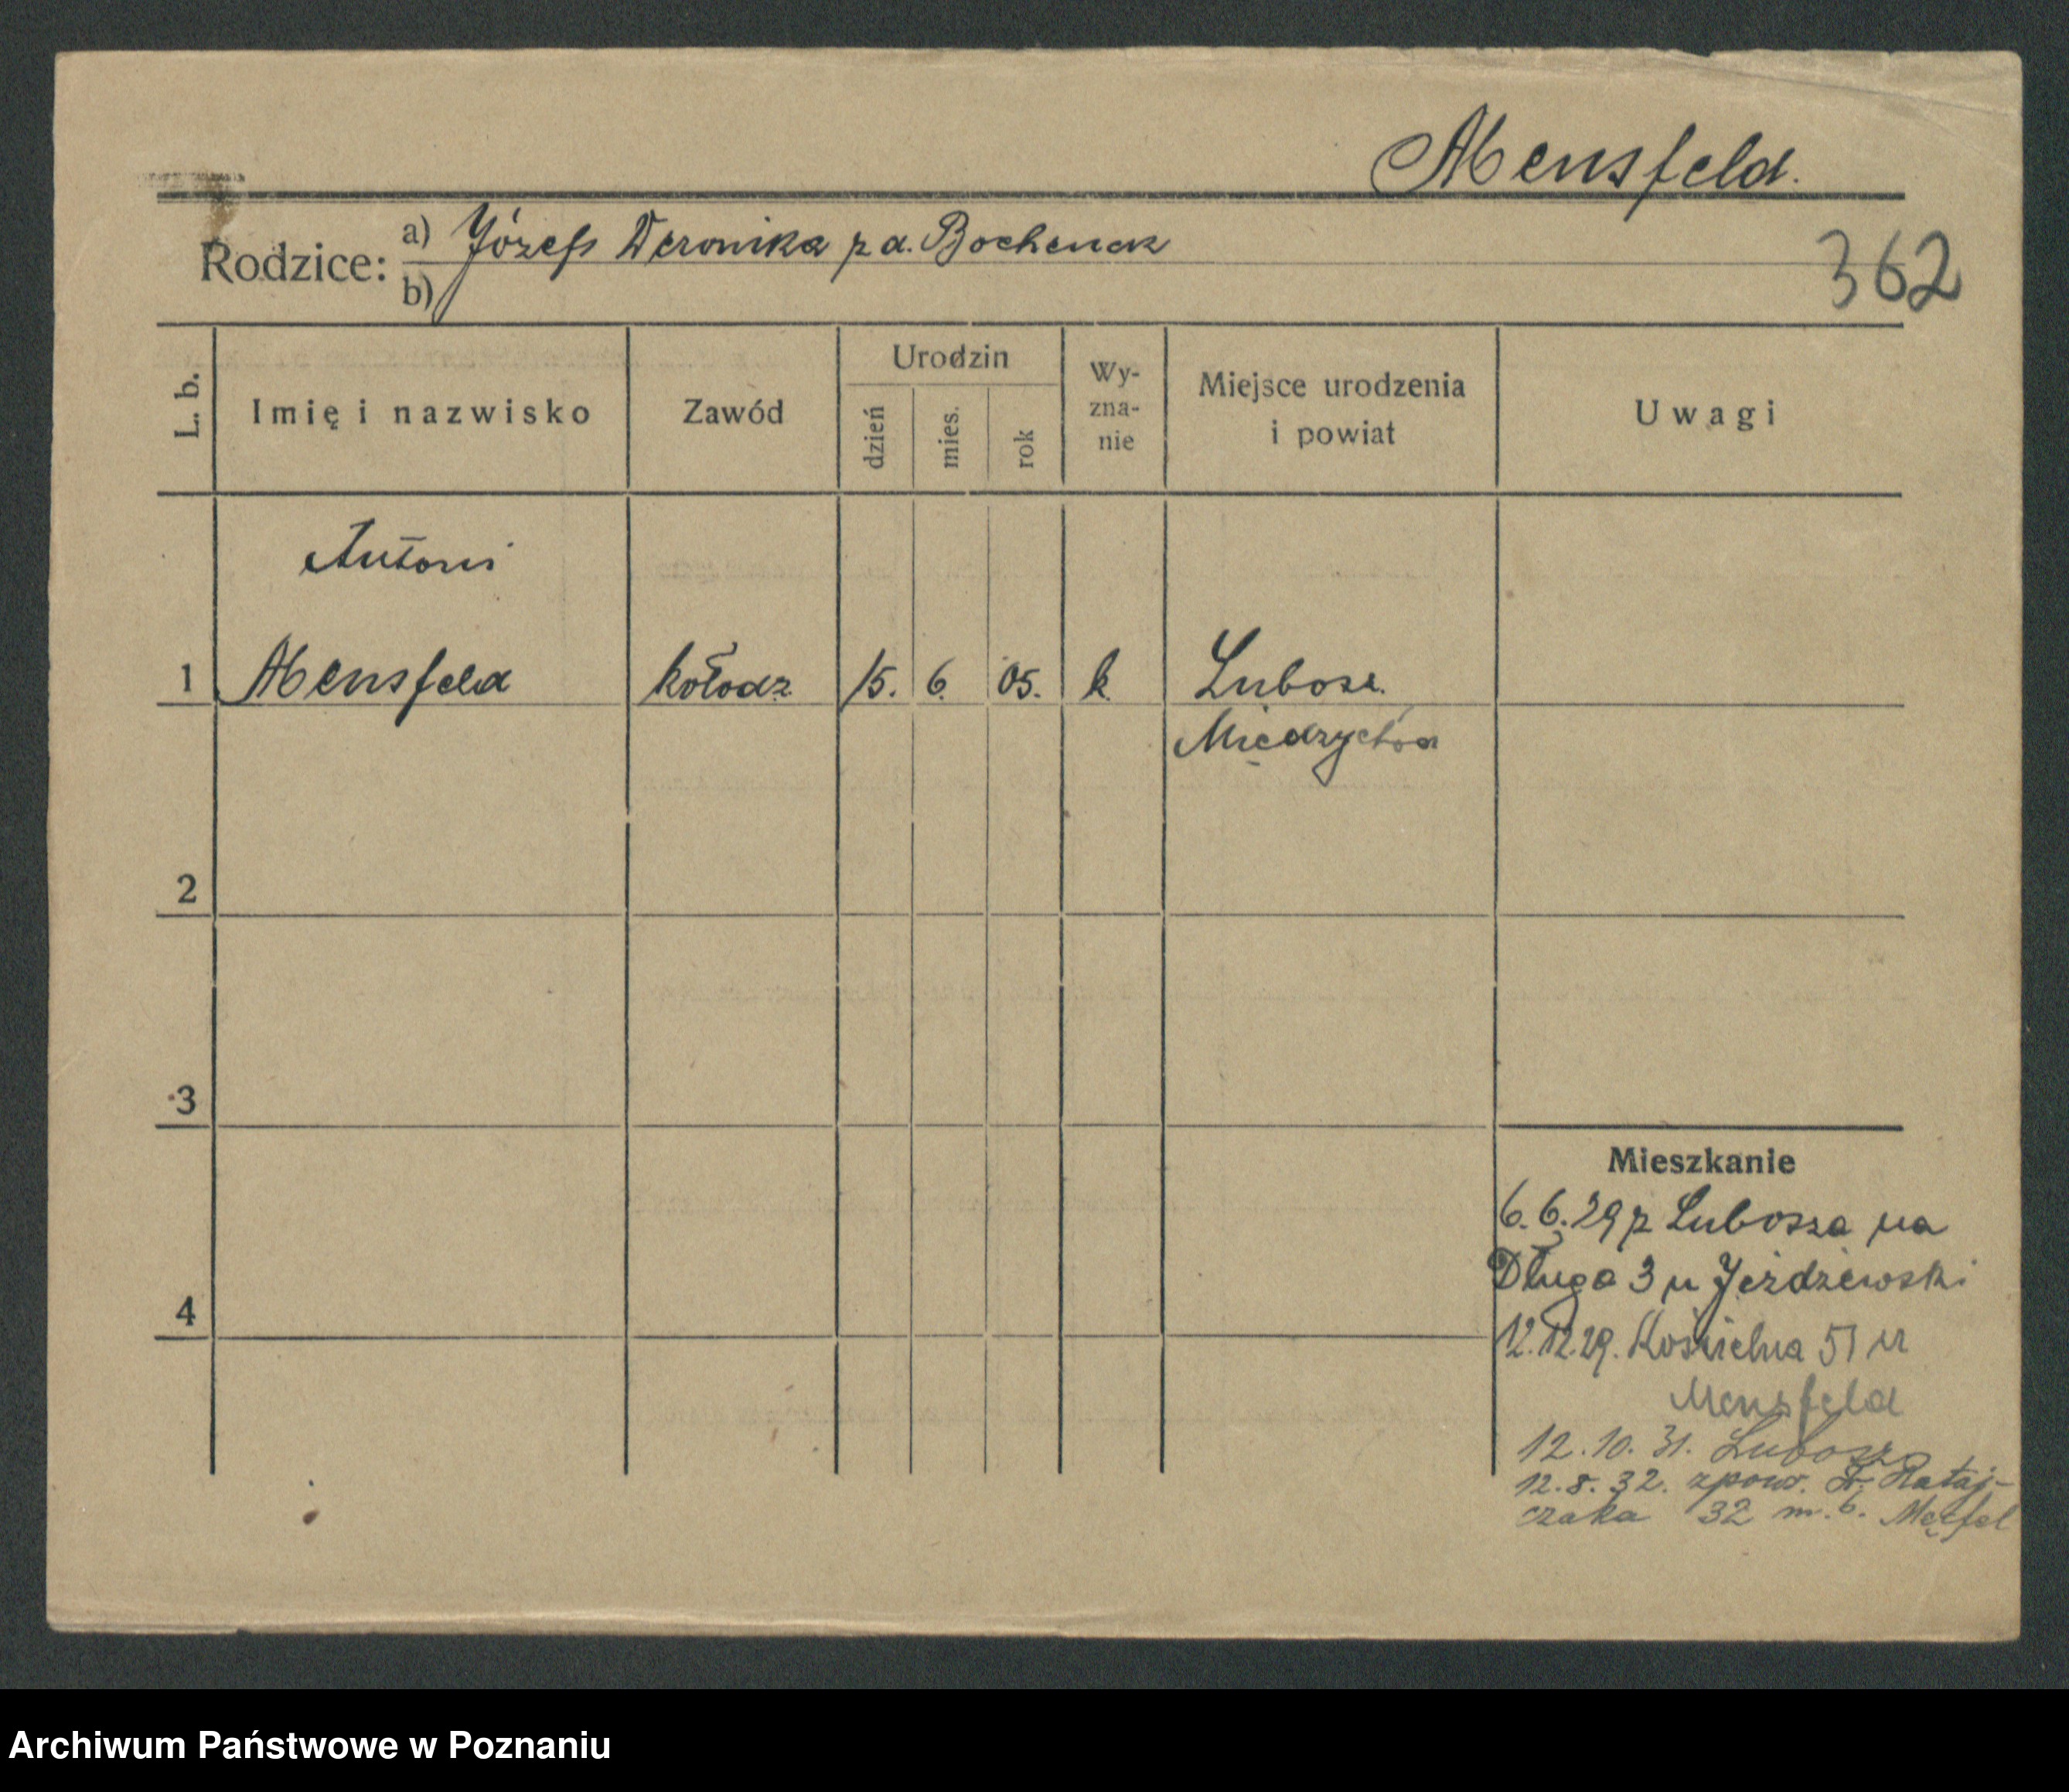 Mensfeld.
Rodzice: a) Józefs Weronika z d. Bochenek
b)
362
L. b.
Imię i nazwisko
Zawód
Urodzin
dzień
mies.
rok
Wy-
zna-
nie
Miejsce urodzenia
i powiat
Uwagi
Antoni
1 Mensfeld kołodz. 15. 6. 05. k. Lubosz.
Międzychód
2
3
4
Mieszkanie
6.6.29 z Lubosza na
Długa 3 u Jeżdżewski
12.12.29. Kościelna 51 u
Mensfeld
12.10.31. Lubosz
12.8.32. zpow. Fr. Rataj-
czaka 32 m. 6.
Archiwum Państwowe w Poznaniu